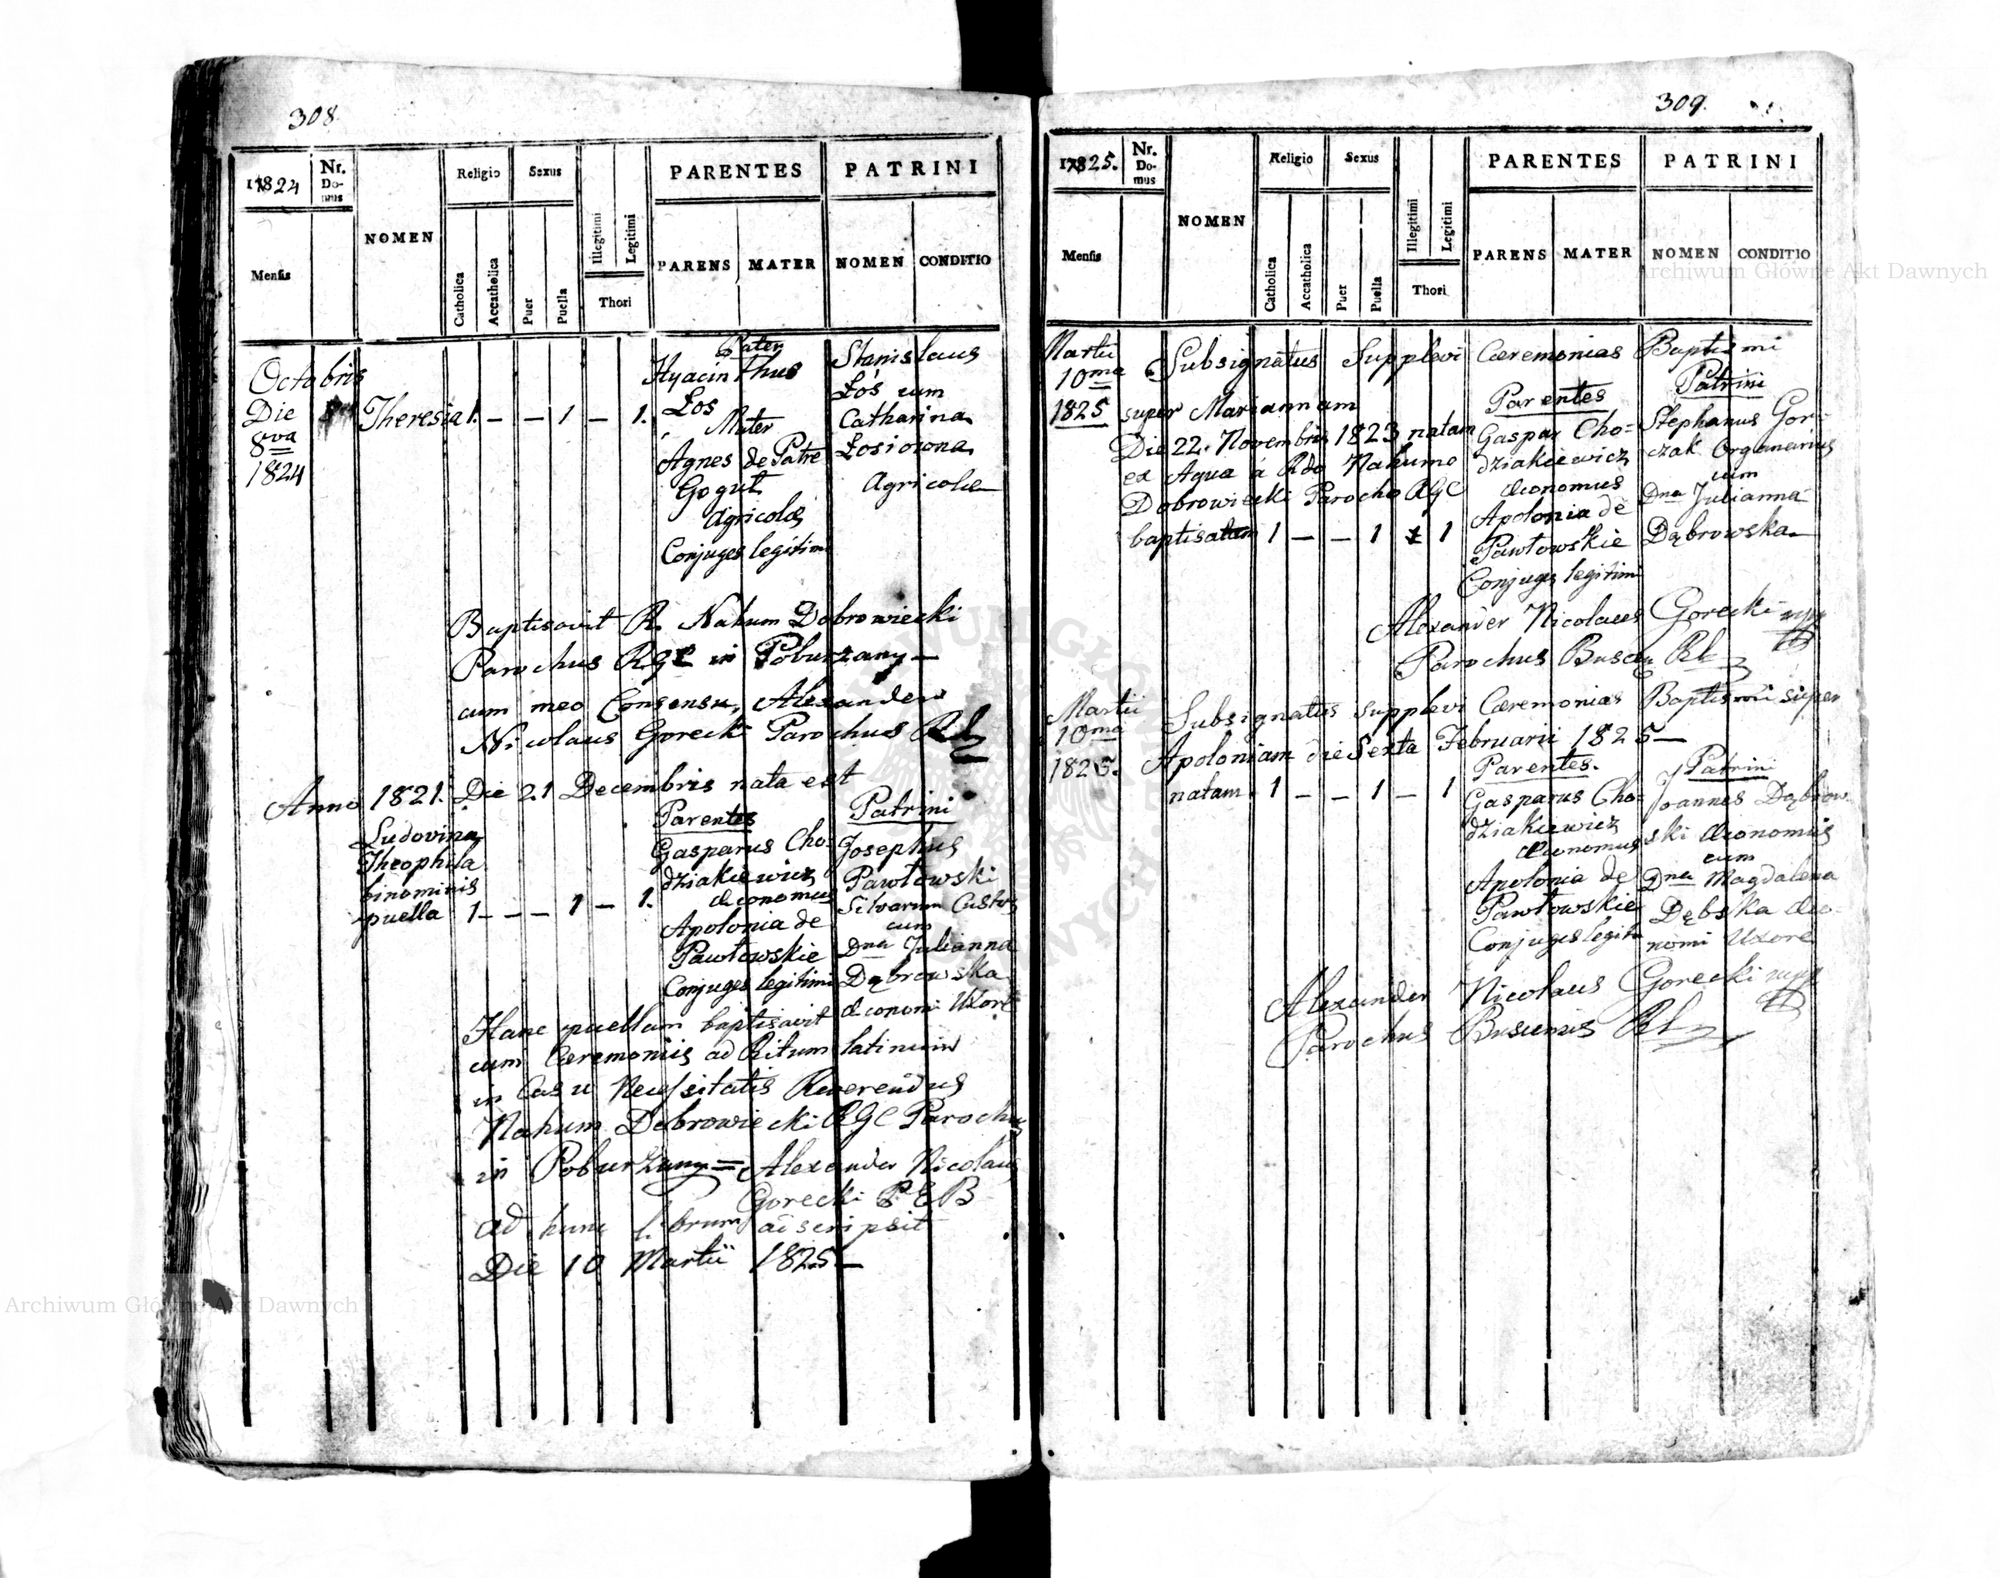 308.
1824
Nr. Domus
NOMEN
Religio
Sexus
PARENTES
PATRINI
Mensis
Catholica
Accatholica
Puer
Puella
Illegitimi
Legitimi
Thori
PARENS
MATER
NOMEN
CONDITIO
Octobris
Die
8va
1824
Theresia 1. – – 1 – 1.
Pater
Hyacinthus
Łos
Mater
Agnes de Patre
Gogut
Agricolæ
Conjuges legitimi
Stanislaus
Łoś cum
Catharina
Łosiowna
Agricolæ
Baptisavit R. Nahum Dobrowiecki
Parochus RGC in Pobużany –
cum meo Consensu, Alexander
Nicolaus Gorecki Parochus RL
Anno 1821. Die 21 Decembris nata est
Ludovina
Theophila
binominis
puella 1 – – – 1 – 1.
Parentes
Gasparus Cho-
dziakiewicz
Œconomus
Apolonia de
Pawłowskie
Conjuges legitimi
Patrini
Josephus
Pawłowski
Silvarum Custos
cum
Dna Julianna
Dąbrowska
Œconomi Uxore
Hanc puellam baptisavit
cum Cæremoniis ad Ritum latinum
in Casu Necessitatis Reverendus
Nahum Dobrowiecki RGC Parochus
in Pobużany = Alexander Nicolaus
Gorecki P E B
ad hunc librum adscripsit
Die 10 Martii 1825 –
309.
1825.
Nr. Domus
NOMEN
Religio
Sexus
PARENTES
PATRINI
Mensis
Catholica
Accatholica
Puer
Puella
Illegitimi
Legitimi
Thori
PARENS
MATER
NOMEN
CONDITIO
Martii
10ma
1825
Subsignatus Supplevi Cæremonias Baptismi
super Mariannam
Die 22. Novembris 1823 natam
ex Aqua á Rdo Nahumo
Dobrowiecki Parocho RGC
baptisatam 1 – – 1 1
Parentes
Gaspar Cho=
dziakiewicz
Œconomus
Apolonia de
Pawłowskie
Conjuges legitimi
Patrini
Stephanus Gor-
czak Organarius
cum
Dna Julianna
Dąbrowska
Alexander Nicolaus Gorecki mpp
Parochus Buscen RL
Martii
10ma
1825.
Subsignatus supplevi Cæremonias Baptismi super
Apoloniam die Sexta Februarii 1825 –
natam 1 – – 1 – 1
Parentes.
Gasparus Cho-
dziakiewicz
Œconomus
Apolonia de
Pawłowskie
Conjuges legit
Patrini
Joannes Dąbrow-
ski Œconomus
cum
Dna Magdalena
Dębska Œco-
nomi Uxore
Alexander Nicolaus Gorecki mpp
Parochus Buscensis RL
Archiwum Główne Akt Dawnych
Archiwum Główne Akt Dawnych